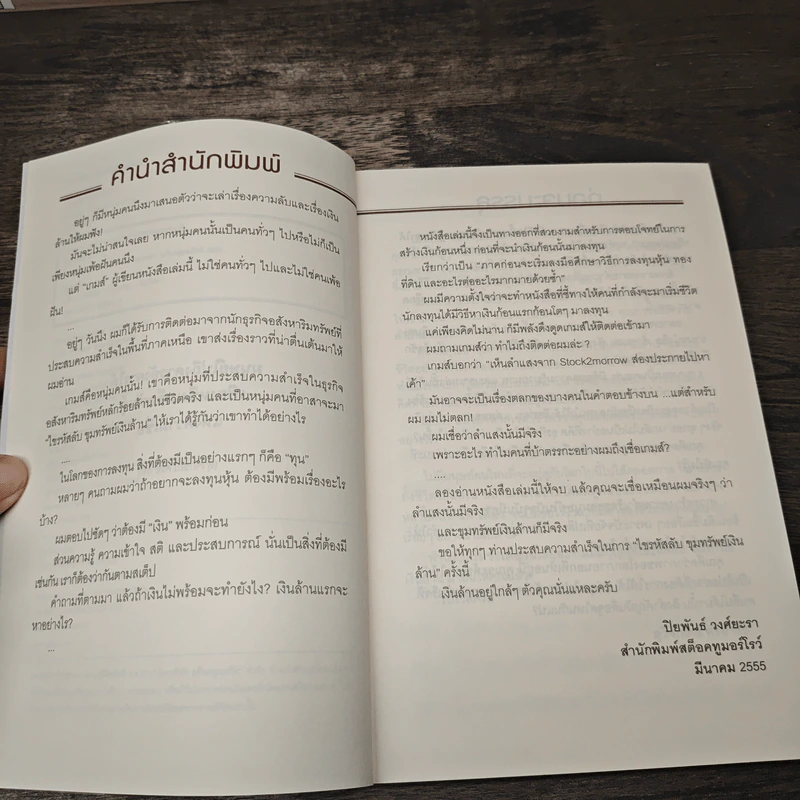 คำนำสำนักพิมพ์
อยู่ๆ ก็มีหนุ่มคนนึงมาเสนอตัวว่าจะเล่าเรื่องความลับและเรื่องเงิน
ล้านให้ผมฟัง!
มันจะไม่น่าสนใจเลย หากหนุ่มคนนั้นเป็นคนทั่วๆ ไปหรือไม่ก็เป็น
เพียงหนุ่มเพ้อฝันคนนึง
แต่ "เกมส์" ผู้เขียนหนังสือเล่มนี้ ไม่ใช่คนทั่วๆ ไปและไม่ใช่คนเพ้อ
ฝัน!
...
อยู่ๆ วันนึง ผมก็ได้รับการติดต่อมาจากนักธุรกิจอสังหาริมทรัพย์ที่
ประสบความสำเร็จในพื้นที่ภาคเหนือ เขาส่งเรื่องราวที่น่าตื่นเต้นมาให้
ผมอ่าน
เกมส์คือหนุ่มคนนั้น! เขาคือหนุ่มที่ประสบความสำเร็จในธุรกิจ
อสังหาริมทรัพย์หลักร้อยล้านในชีวิตจริง และเป็นหนุ่มคนที่อาสาจะมา
"ไขรหัสลับ ขุมทรัพย์เงินล้าน" ให้เราได้รู้กันว่าเขาทำได้อย่างไร
....
ในโลกของการลงทุน สิ่งที่ต้องมีเป็นอย่างแรกๆ ก็คือ "ทุน"
หลายๆ คนถามผมว่าถ้าอยากจะลงทุนหุ้น ต้องมีพร้อมเรื่องอะไร
บ้าง?
ผมตอบไปชัดๆ ว่าต้องมี "เงิน" พร้อมก่อน
ส่วนความรู้ ความเข้าใจ สติ และประสบการณ์ นั่นเป็นสิ่งที่ต้องมี
เช่นกัน เราก็ต้องว่ากันตามสเต็ป
คำถามที่ตามมา แล้วถ้าเงินไม่พร้อมจะทำยังไง? เงินล้านแรกจะ
หาอย่างไร?
...
หนังสือเล่มนี้จึงเป็นทางออกที่สวยงามสำหรับการตอบโจทย์ในการ
สร้างเงินก้อนหนึ่ง ก่อนที่จะนำเงินก้อนนั้นมาลงทุน
เรียกว่าเป็น "ภาคก่อนจะเริ่มลงมือศึกษาวิธีการลงทุนหุ้น ทอง
ที่ดิน และอะไรต่ออะไรมากมายด้วยซ้ำ"
ผมมีความตั้งใจว่าจะทำหนังสือที่ชี้ทางให้คนที่กำลังจะมาเริ่มชีวิต
นักลงทุนได้มีวิธีหาเงินก้อนแรกก้อนโตๆ มาลงทุน
แค่เพียงคิดไม่นาน ก็มีพลังดึงดูดเกมส์ให้ติดต่อเข้ามา
ผมถามเกมส์ว่า ทำไมถึงติดต่อผมล่ะ ?
เกมส์บอกว่า "เห็นลำแสงจาก Stock2morrow ส่องประกายไปหา
เค้า"
มันอาจจะเป็นเรื่องตลกของบางคนในคำตอบข้างบน ...แต่สำหรับ
ผม ผมไม่ตลก!
ผมเชื่อว่าลำแสงนั้นมีจริง
เพราะอะไร ทำไมคนที่บ้าตรรกะอย่างผมถึงเชื่อเกมส์?
....
ลองอ่านหนังสือเล่มนี้ให้จบ แล้วคุณจะเชื่อเหมือนผมจริงๆ ว่า
ลำแสงนั้นมีจริง
และขุมทรัพย์เงินล้านก็มีจริง
ขอให้ทุกๆ ท่านประสบความสำเร็จในการ "ไขรหัสลับ ขุมทรัพย์เงิน
ล้าน" ครั้งนี้
เงินล้านอยู่ใกล้ๆ ตัวคุณนั่นแหละครับ
ปิยพันธ์ วงศ์ยะรา
สำนักพิมพ์สต็อคทูมอร์โรว์
มีนาคม 2555